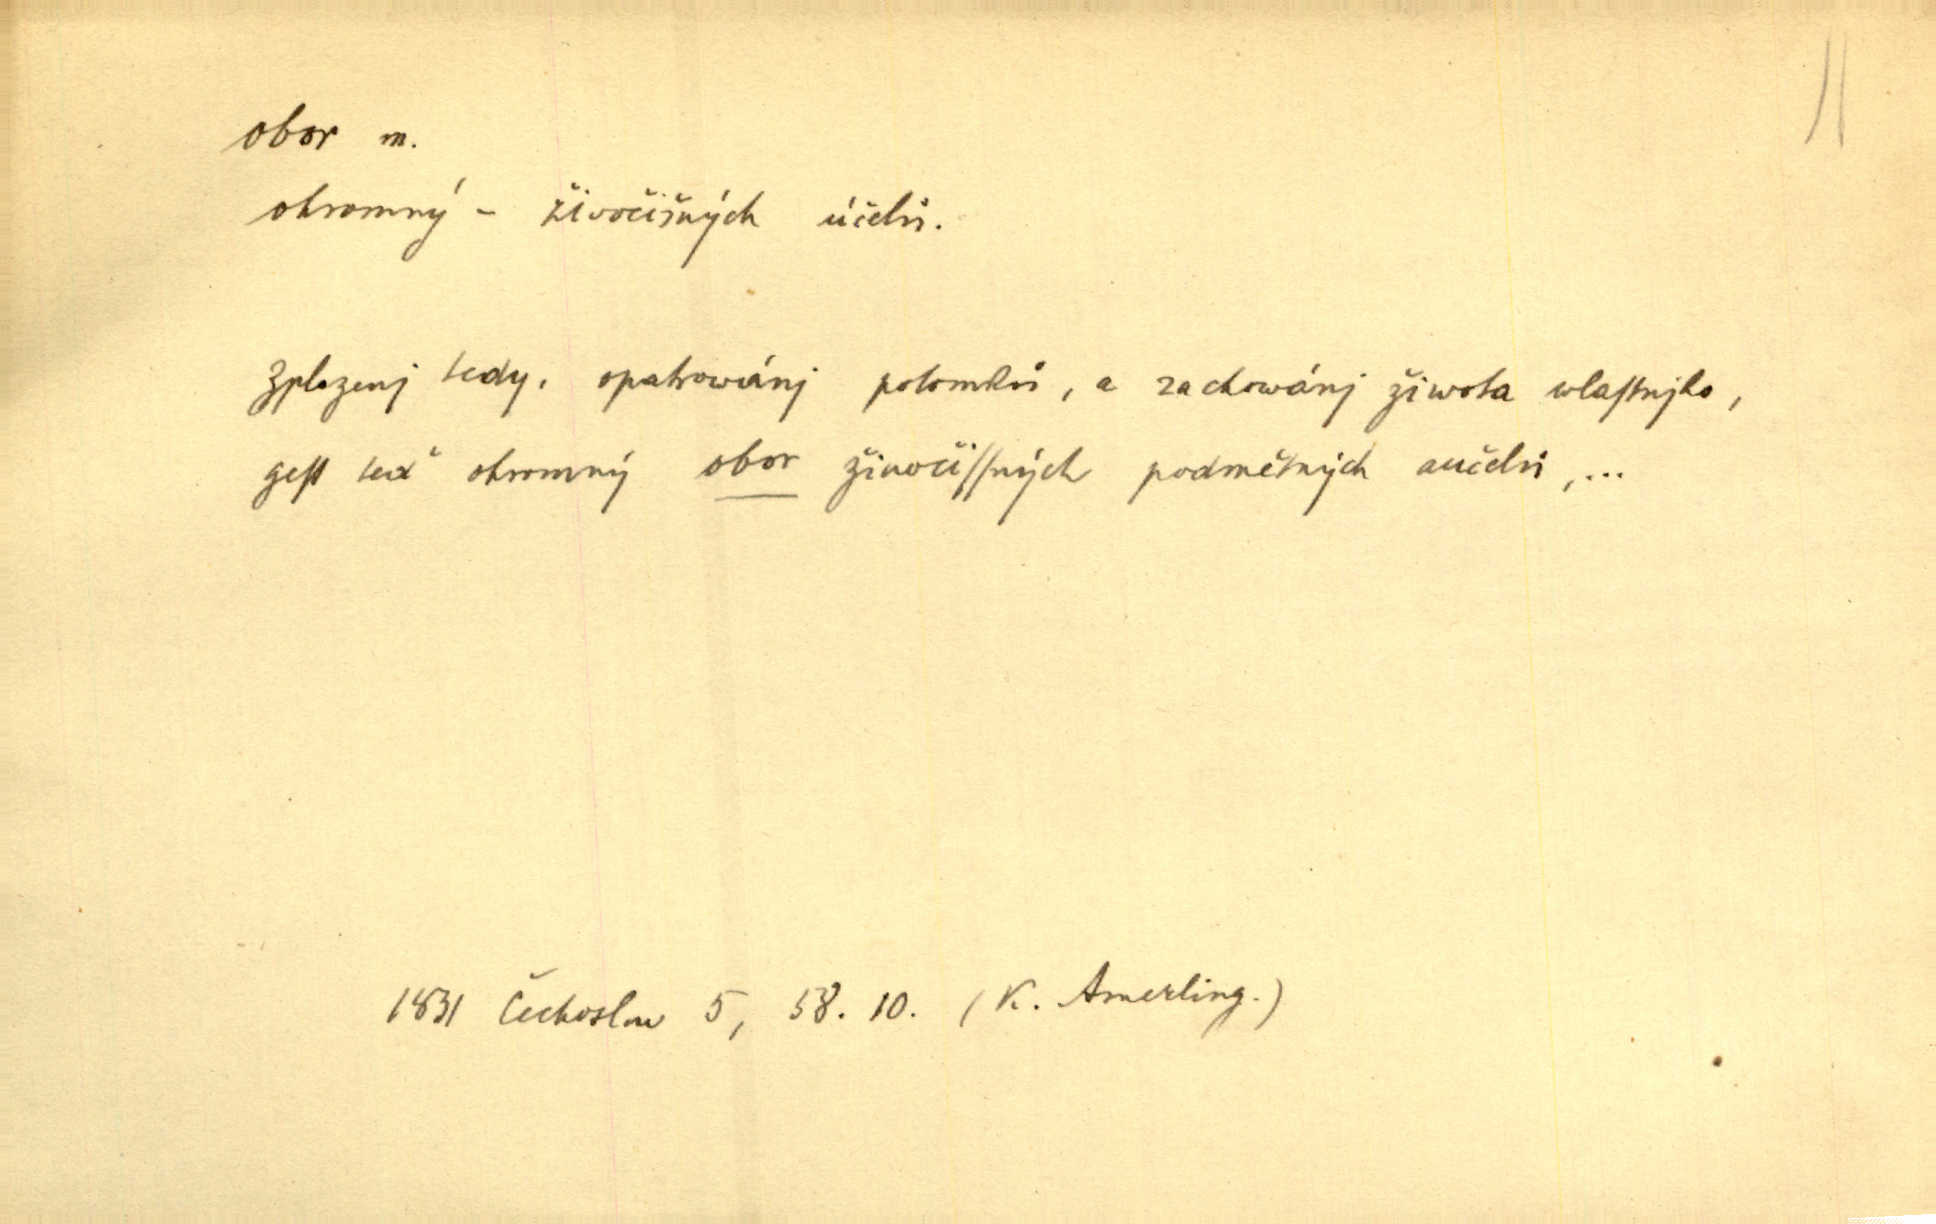 obor m.
ohromný - živočišných účelů.
Zplozenj tedy, opatrowánj potomků, a zachowánj žiwota wlaſtnjho,
geſt teď ohromný obor žiwočiſſných podmětných aučelů, ...
1831 Čechoslaw 5, 58. 10. (K. Amerling.)